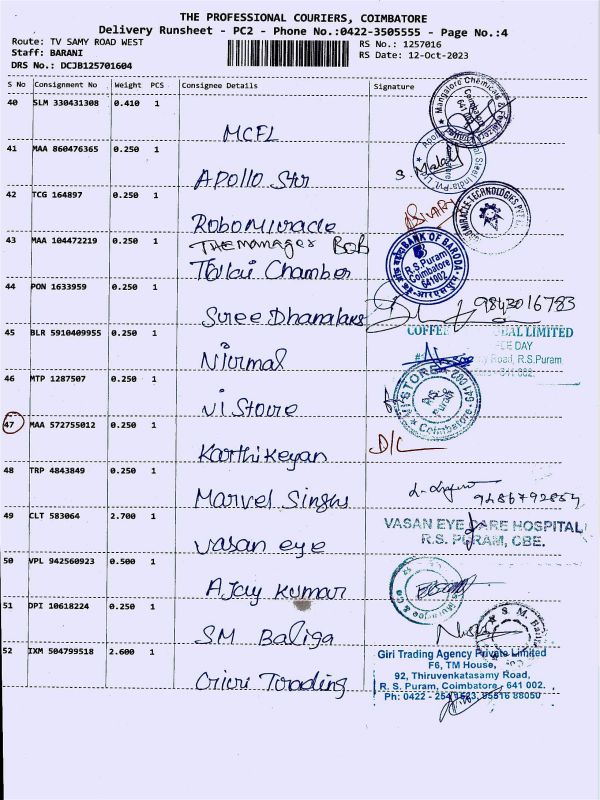 THE PROFESSIONAL COURIERS, COIMBATORE
Delivery Runsheet - PC2 - Phone No.:0422-3505555 - Page No.:4
Route: TV SAMY ROAD WEST
RS No.: 1257016
Staff: BARANI
RS Date: 12-Oct-2023
DRS No.: DCJB125701604
S No Consignment No Weight PCS Consignee Details Signature
40 SLM 330431308 0.410 1
MCFL
Mangalore Chemicals &
Coimbatore
641
41 MAA 860476365 0.250 1
Apollo Str
Steel India Pvt. Ltd
42 TCG 164897 0.250 1
Robo Miracle
MIRACLE TECHNOLOGIES PVT
The manager BOB
43 MAA 104472219 0.250 1
Talai Chamber
BANK OF BARODA
R.S.Puram
Coimbatore
641002
44 PON 1633959 0.250 1
Sree Dhanalaks
9843016783
45 BLR 5910409955 0.250 1
COFFEE BAL LIMITED
EE DAY
Road, R.S.Puram
641 002.
Nirmal
46 MTP 1287507 0.250 1
Vi Store
VI STORE
R.S. Puram
Coimbatore
641 002
47 MAA 572755012 0.250 1
D/C
Karthikeyan
48 TRP 4843849 0.250 1
Marvel Singhs
49 CLT 583064 2.700 1
VASAN EYE CARE HOSPITAL
R.S. PURAM, CBE.
Vasan eye
50 VPL 942560923 0.500 1
Ajay Kumar
& Co
51 DPI 10618224 0.250 1
SM Baliga
S. M. Bali
52 IXM 504799518 2.600 1
Giri Trading
Giri Trading Agency Private Limited
F6, TM House,
92, Thiruvenkatasamy Road,
R. S. Puram, Coimbatore - 641 002.
Ph: 0422 - 254 95516 88050